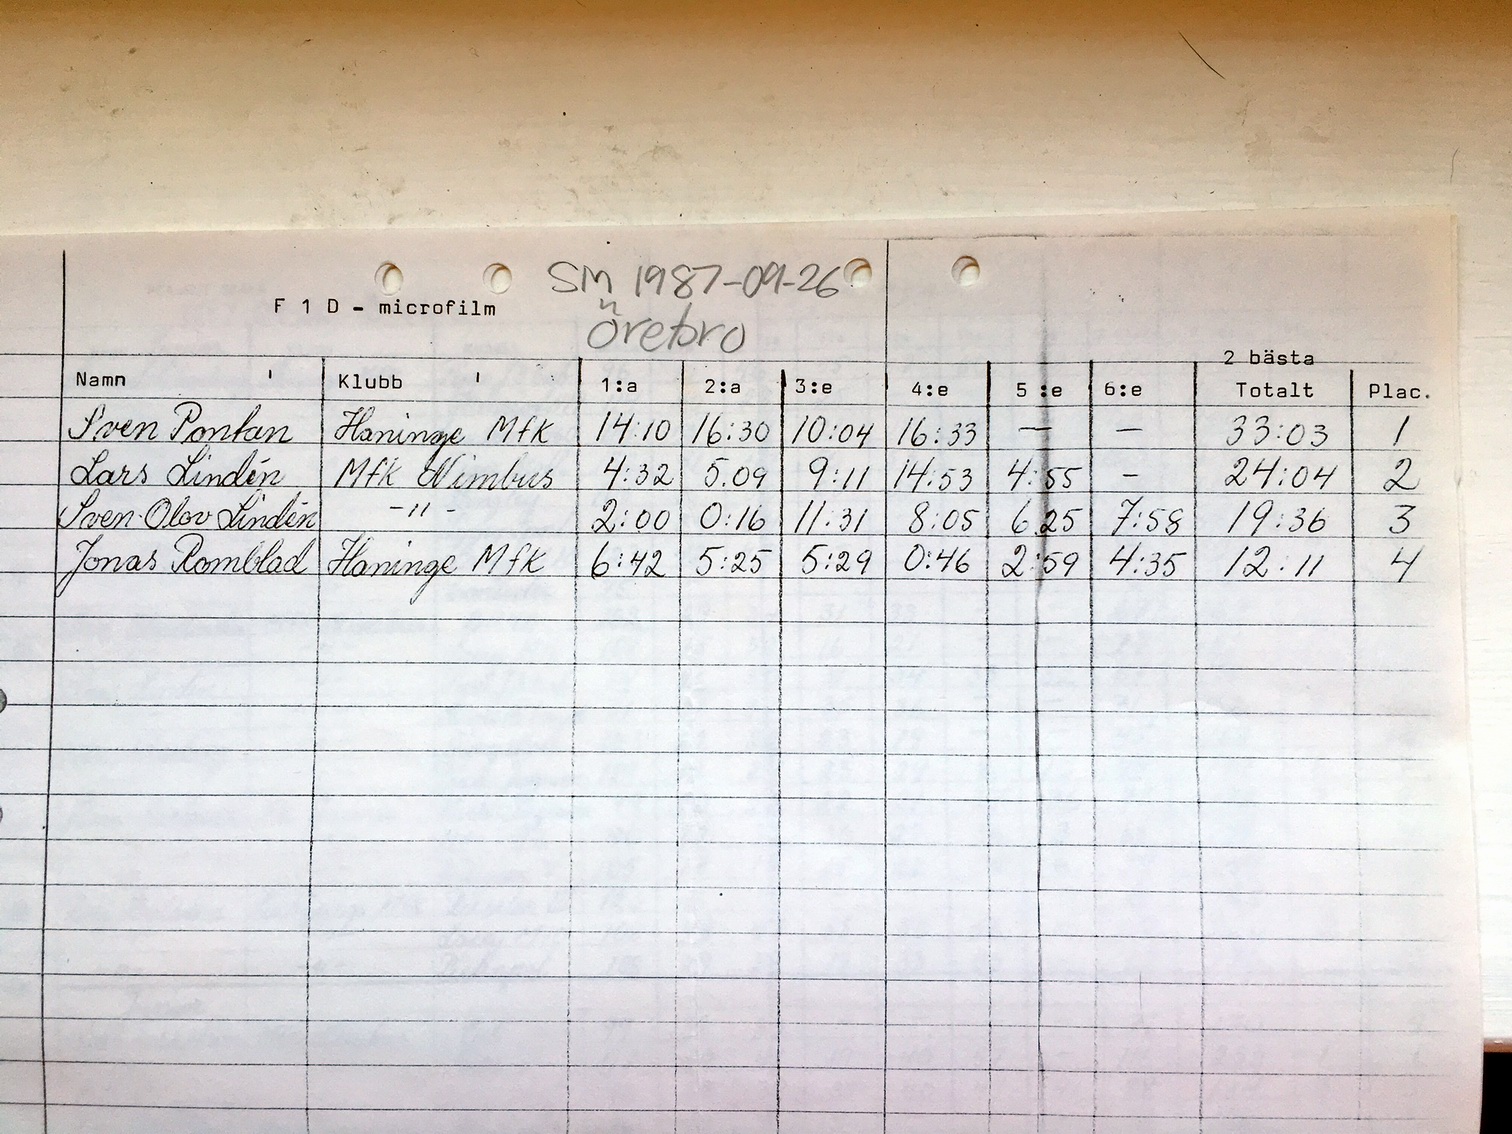 SM 1987-09-26
F 1 D - microfilm
Örebro
2 bästa
Namn Klubb 1:a 2:a 3:e 4:e 5:e 6:e Totalt Plac.
Sven Pontan Haninge Mfk 14:10 16:30 10:04 16:33 — — 33:03 1
Lars Lindén Mfk Nimbus 4:32 5.09 9:11 14:53 4:55 - 24:04 2
Sven-Olov Lindén -"- 2:00 0:16 11:31 8:05 6:25 7:58 19:36 3
Jonas Romblad Haninge Mfk 6:42 5:25 5:29 0:46 2:59 4:35 12:11 4